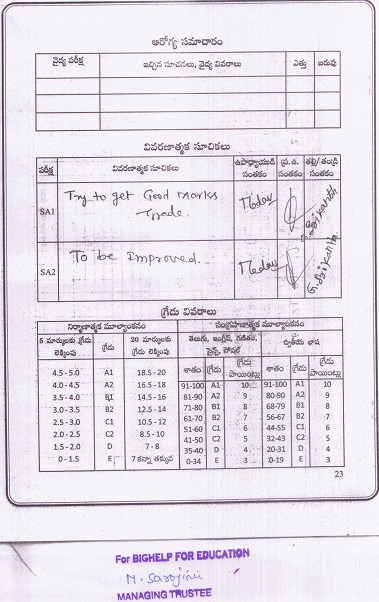 ఆరోగ్య సమాచారం
వైద్య పరీక్ష ఇచ్చిన సూచనలు, వైద్య వివరాలు ఎత్తు బరువు
వివరణాత్మక సూచికలు
పరీక్ష వివరణాత్మక సూచికలు ఉపాధ్యాయుడి సంతకం ప్ర.ఉ. సంతకం తల్లి/ తండ్రి సంతకం
SA1 Try to get Good marks
Grade.
SA2 To be Improved. G. Srikanth
గ్రేడు వివరాలు
నిర్మాణాత్మక మూల్యాంకనం సంగ్రహణాత్మక మూల్యాంకనం
5 మార్కులకు గ్రేడు లెక్కింపు గ్రేడు 20 మార్కులకు గ్రేడు లెక్కింపు తెలుగు, ఇంగ్లీష్, గణితం, సైన్స్, సోషల్ ద్వితీయ భాష
శాతం గ్రేడు గ్రేడు పాయింట్లు శాతం గ్రేడు గ్రేడు పాయింట్లు
4.5 - 5.0 A1 18.5 - 20 91-100 A1 10 91-100 A1 10
4.0 - 4.5 A2 16.5 - 18 81-90 A2 9 80-90 A2 9
3.5 - 4.0 B1 14.5 - 16 71-80 B1 8 68-79 B1 8
3.0 - 3.5 B2 12.5 - 14 61-70 B2 7 56-67 B2 7
2.5 - 3.0 C1 10.5 - 12 51-60 C1 6 44-55 C1 6
2.0 - 2.5 C2 8.5 - 10 41-50 C2 5 32-43 C2 5
1.5 - 2.0 D 7 - 8 35-40 D 4 20-31 D 4
0 - 1.5 E 7 కన్నా తక్కువ 0-34 E 3 0-19 E 3
23
For BIGHELP FOR EDUCATION
M. Sarojini
MANAGING TRUSTEE